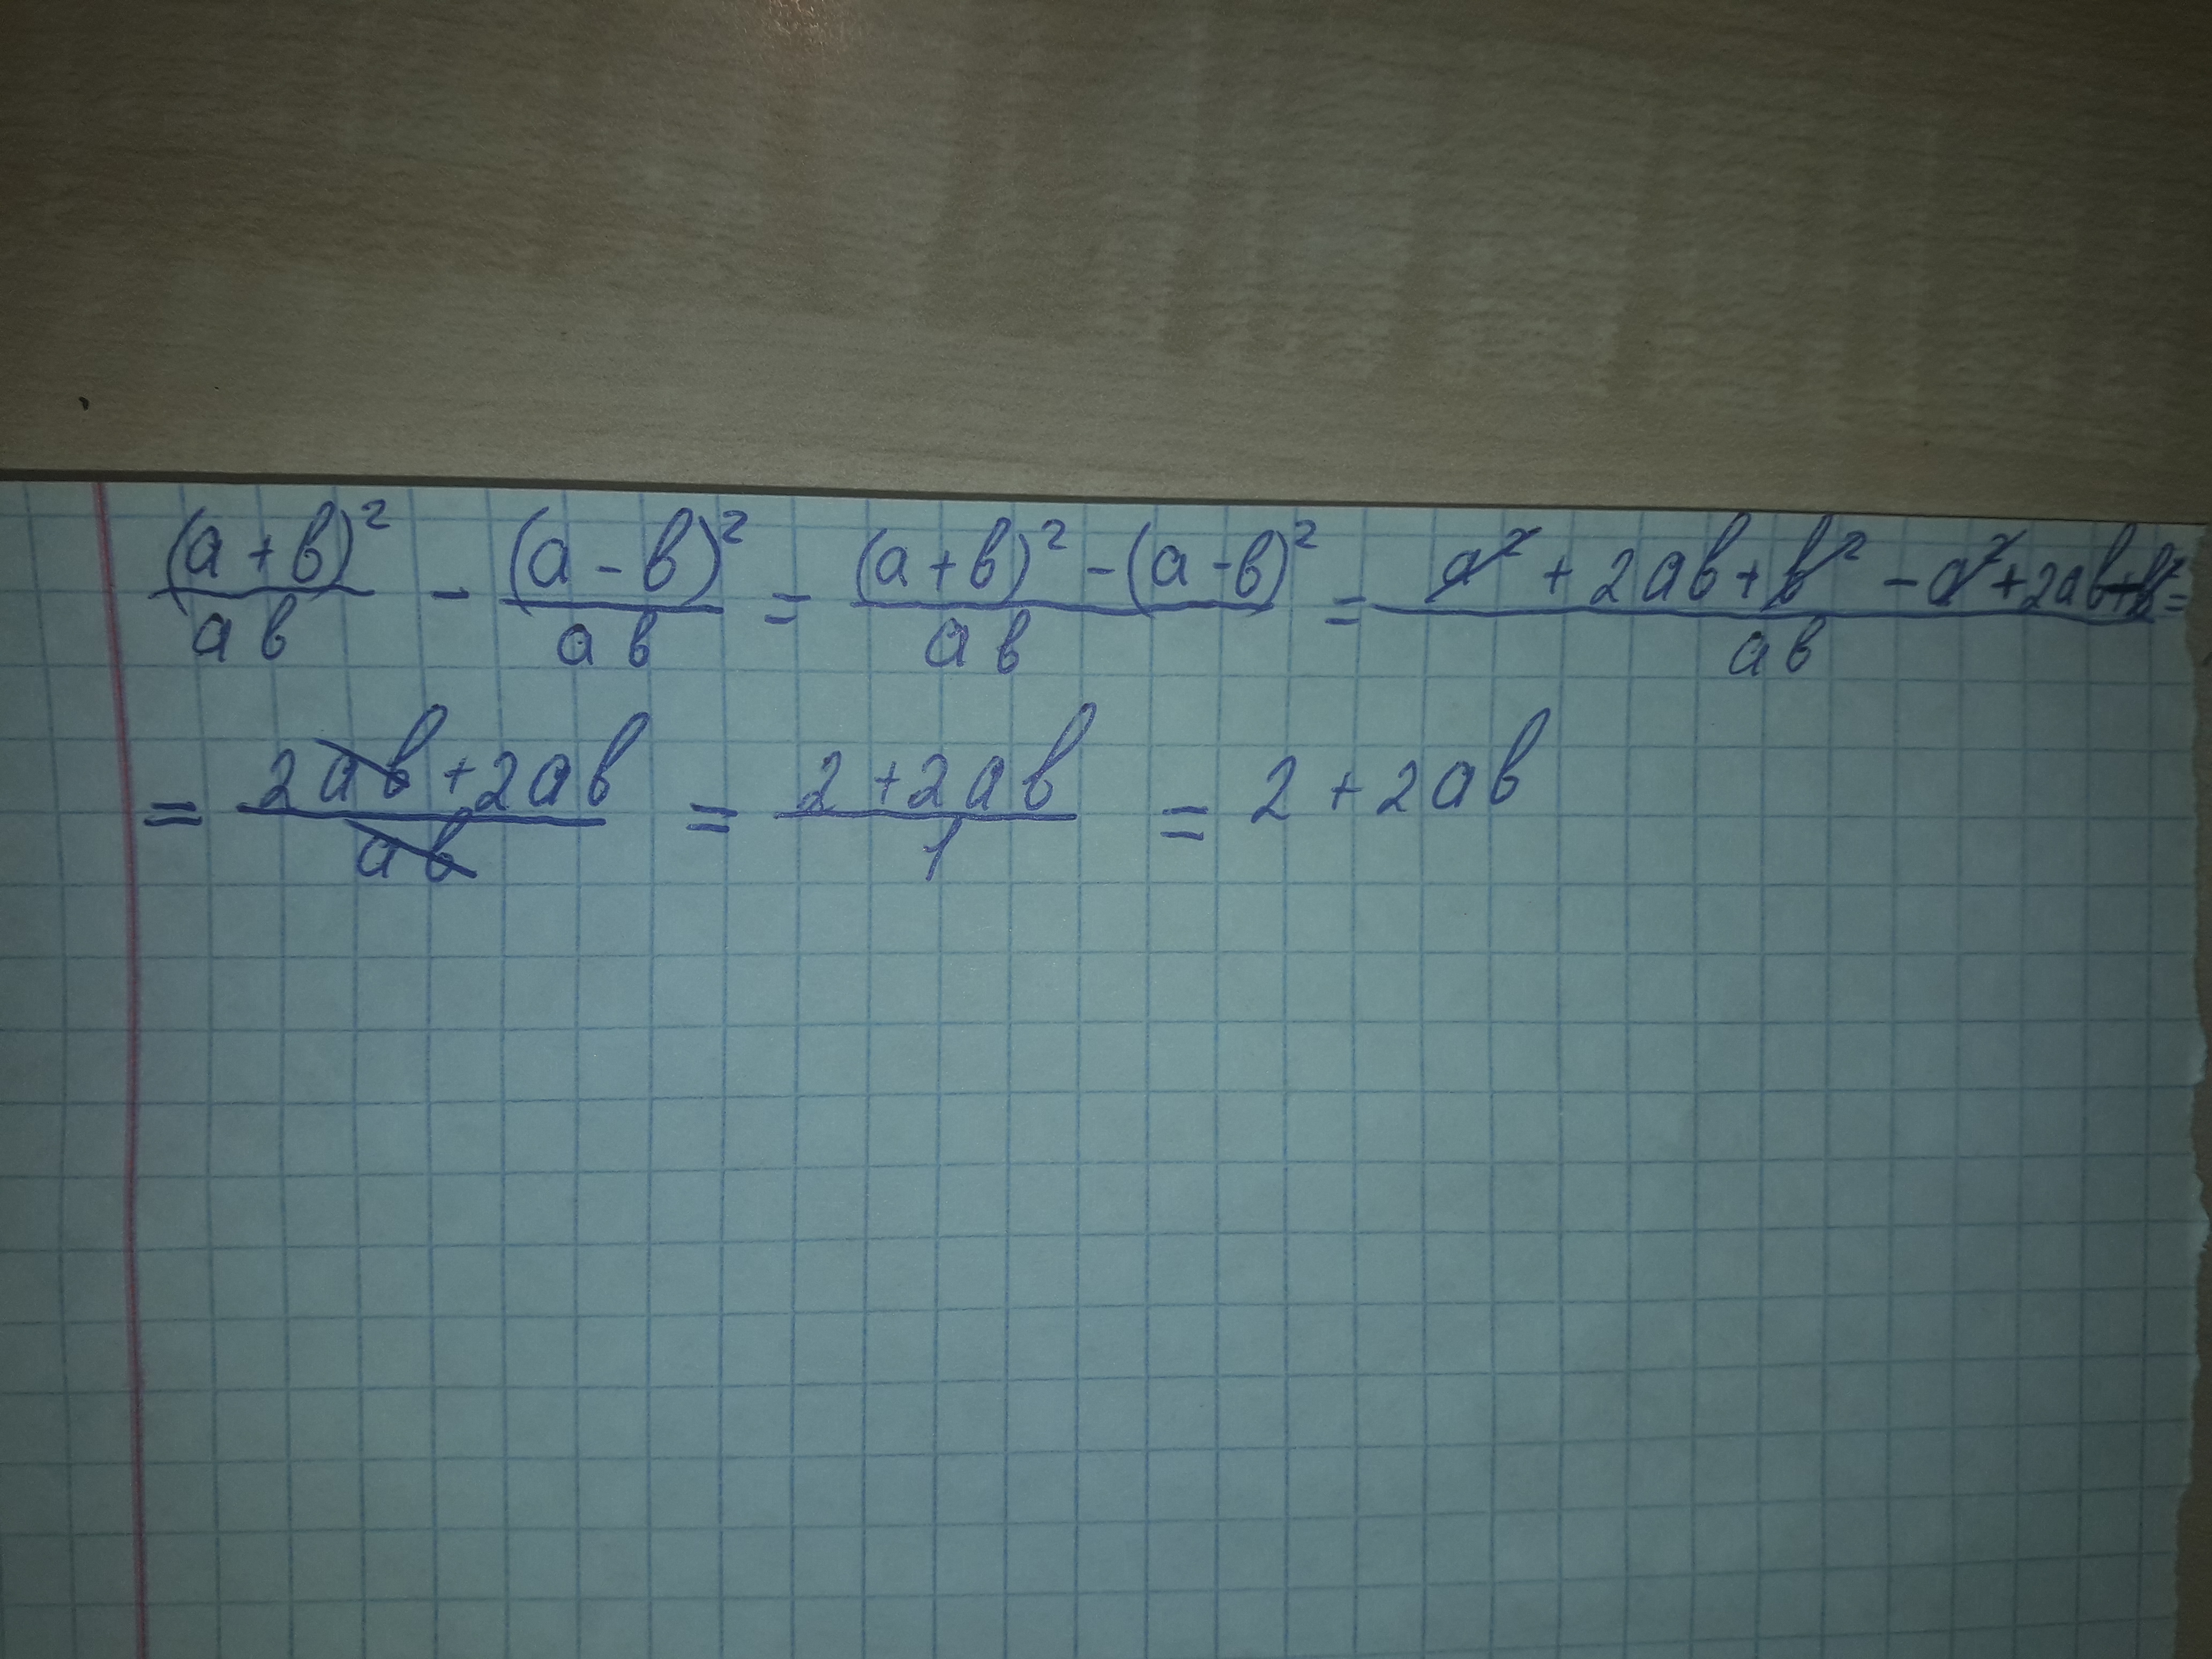 (a + b)² / ab - (a - b)² / ab = (a + b)² - (a - b)² / ab = a² + 2ab + b² - a² + 2ab + b² / ab =
= 2ab + 2ab / ab = 2 + 2ab / 1 = 2 + 2ab